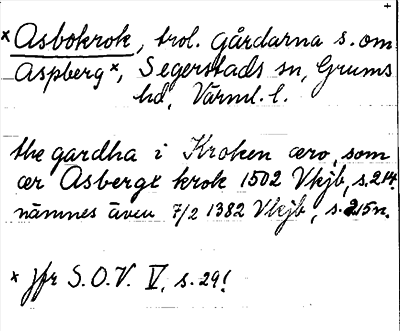 +
ˣAsbokrok, trol. gårdarna s. om
Aspbergˣ, Segerstads sn, Grums
hd, Värml. l.
the gardha i Kroken æro, som
ær Asbergx krok 1502 Vkjb, s. 214.
nämnes även 7/2 1382 Vkjb, s. 215 n.
ˣ Jfr S.O.V. V, s. 29!